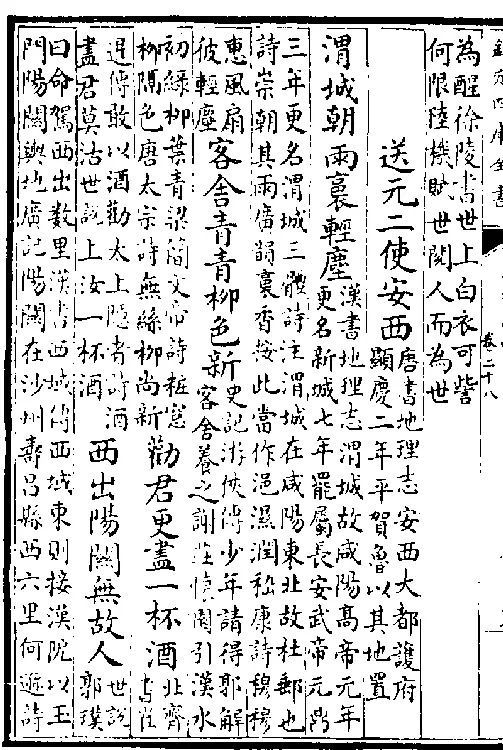 欽定四庫全書
卷二十八
為醒徐陵書世上白衣可訾
何限陸機賦世閱人而為世
送元二使安西
唐書地理志安西大都護府
顯慶二年平賀魯以其地置
渭城朝雨裛輕塵
漢書地理志渭城故咸陽高帝元年
更名新城七年罷屬長安武帝元鼎
三年更名渭城三體詩注渭城在咸陽東北故杜郵也
詩崇朝其雨廣韻裛香按此當作浥濕潤嵇康詩穆穆
惠風扇
彼輕塵
客舍青青柳色新
史記游俠傳少年請得郭解
客舍養之謝莊懷園引漢水
初綠柳葉青梁簡文帝詩粧窻
柳隔色唐太宗詩無絲柳尚新
勸君更盡一杯酒
北齊
書崔
暹傳敢以酒勸大上隠者詩酒
盡君莫沽世說上汝一杯酒
西出陽闗無故人
世說
郭璞
曰命駕西出数里漢書西域傳西域東則接漢阨以玉
門陽闗輿地廣記陽闗在沙州壽昌縣西六里何遜詩